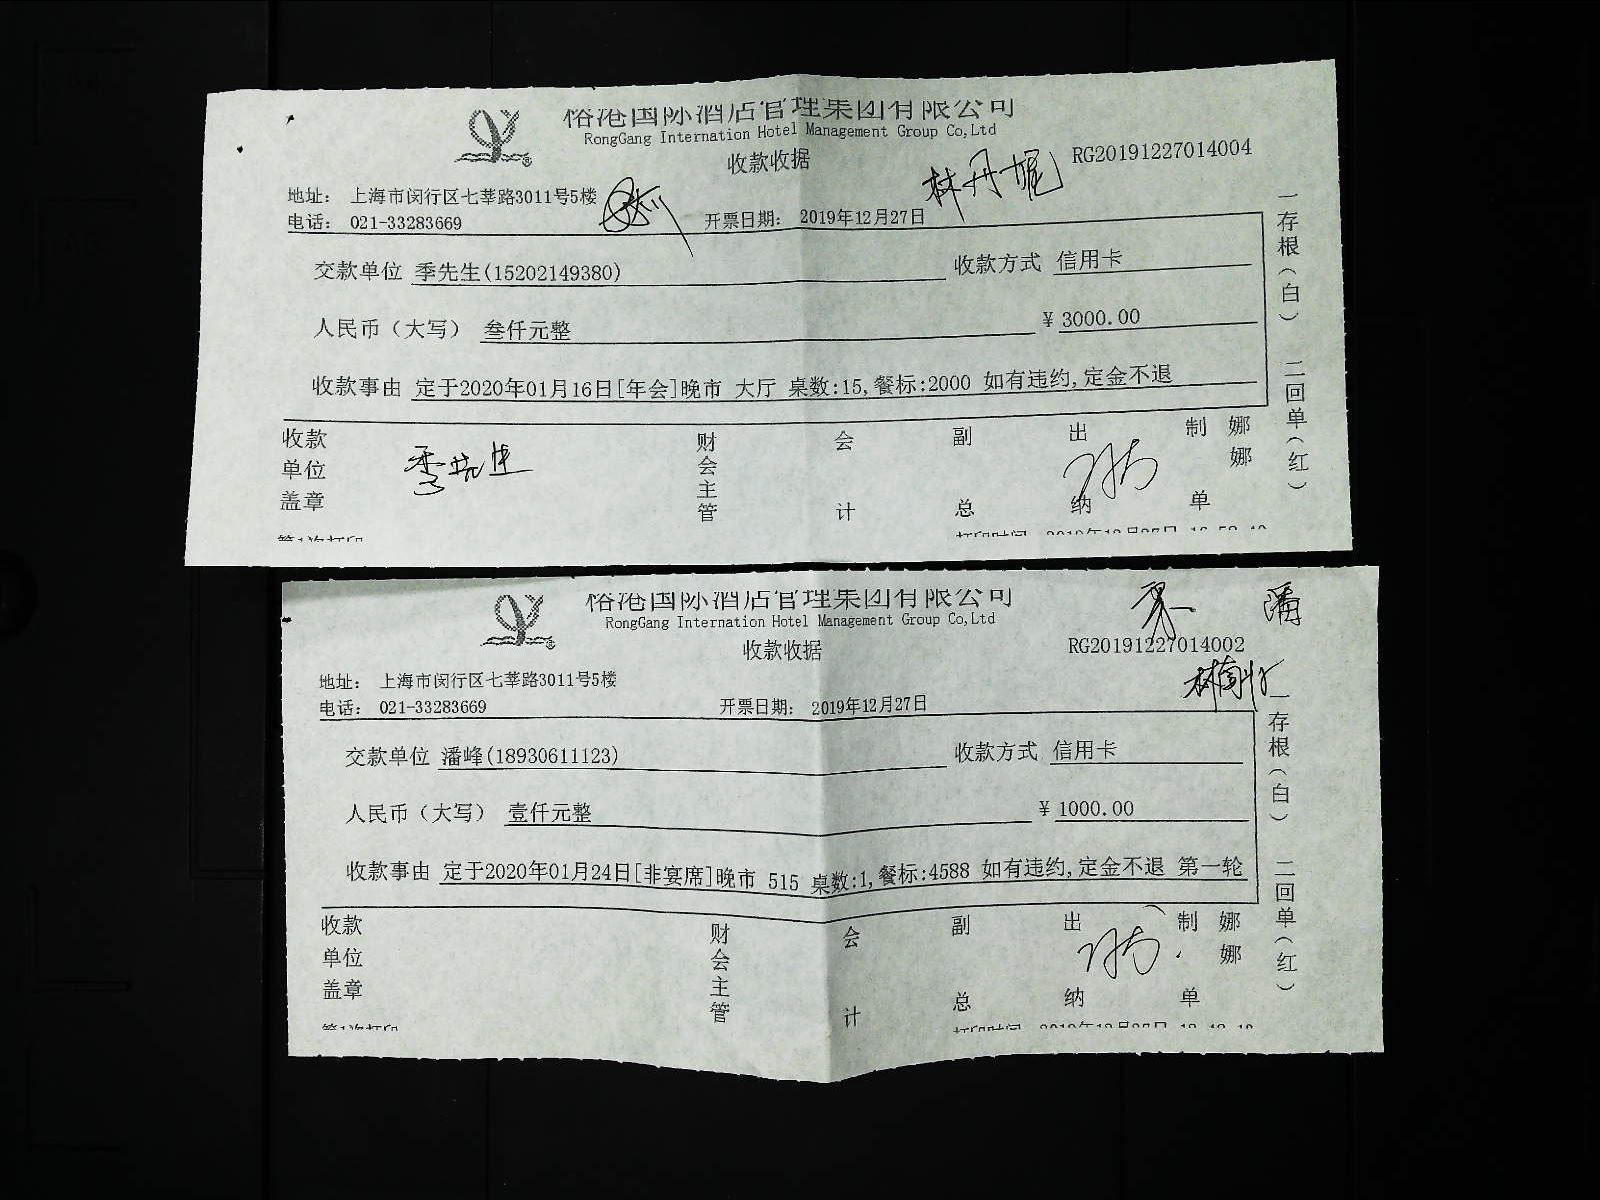 国际酒店管理集团有限公司
RongGang Internation Hotel Management Group Co,Ltd
收款收据
RG20191227014004
地址： 上海市闵行区七莘路3011号5楼
电话： 021-33283669
开票日期： 2019年12月27日
交款单位 季先生(15202149380)
收款方式 信用卡
人民币（大写） 叁仟元整
¥ 3000.00
收款事由 定于2020年01月16日[年会]晚市 大厅 桌数:15,餐标:2000 如有违约,定金不退
一存根（白） 二回单（红）
收款单位盖章
季先生
财会主管
会计
副总
出纳
制单
娜娜
国际酒店管理集团有限公司
RongGang Internation Hotel Management Group Co,Ltd
收款收据
潘
RG20191227014002
地址： 上海市闵行区七莘路3011号5楼
电话： 021-33283669
开票日期： 2019年12月27日
交款单位 潘峰(18930611123)
收款方式 信用卡
人民币（大写） 壹仟元整
¥ 1000.00
收款事由 定于2020年01月24日[非宴席]晚市 515 桌数:1,餐标:4588 如有违约,定金不退 第一轮
一存根（白） 二回单（红）
收款单位盖章
财会主管
会计
副总
出纳
制单
娜娜